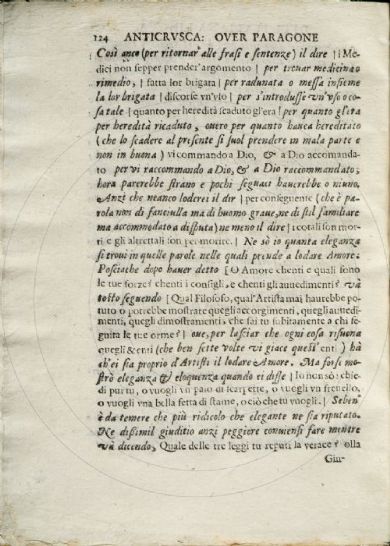 124 ANTICRVSCA: OVER PARAGONE
Così anco (per ritornar' alle frasi e sentenze) il dire | i Me-
dici non sepper prender' argomento | per trouar medicina o
rimedio, | fatta lor brigata | per radunata o messa insieme
la lor brigata | discorse vn'vso | per s'introdusse vn'vso o co-
sa tale | quanto per heredità scaduto gl'era | per quanto gl'era
per heredità ricaduto, ouero per quanto hauea hereditato
(che lo scadere al presente si suol prendere in mala parte e
non in buona) vi commando a Dio, & a Dio accomanda-
to per vi raccommando a Dio, & a Dio raccommandato,
hora parerebbe strano e pochi seguaci hauerebbe o niuno.
Anzi che neanco loderei il dir | per conseguente (che è pa-
rola non di fanciulla ma di huomo graue, ne di stil familiare
ma accommodato a disputa) ne meno il dire | i cotali son mor-
ti e gli altrettali son per morire. | Ne sò io quanta eleganza
si troui in quelle parole nelle quali prende a lodare Amore.
Posciache dopo hauer detto [O Amore chenti e quali sono
le tue forze? chenti i consigli, e chenti gli auuedimenti? và
tosto seguendo | Qual Filosofo, qual'Artista mai haurebbe po-
tuto o potrebbe mostrare quegli accorgimenti, quegli auuedi-
menti, quegli dimostramenti, che fai tu subitamente a chi se-
guita le tue orme? | oue, per lasciar che ogni cosa risuona
quegli & enti (che ben sette volte vi giace quest' enti) hà
ch'ei sia proprio d'Artisti il lodare Amore. Ma forsi mo-
strò eleganza & eloquenza quando ei disse | Io non sò: chie-
di pur tu, o vuogli vn paio di scarpette, o vuogli vn frenello,
o vuogli vna bella fetta di stame, o ciò che tu vuogli. | Seben'
è da temere che più ridicolo che elegante ne sia riputato.
Ne dissimil giuditio anzi peggiore conuiensi fare mentre
và dicendo, Quale delle tre leggi tu reputi la verace? o la
Giu-